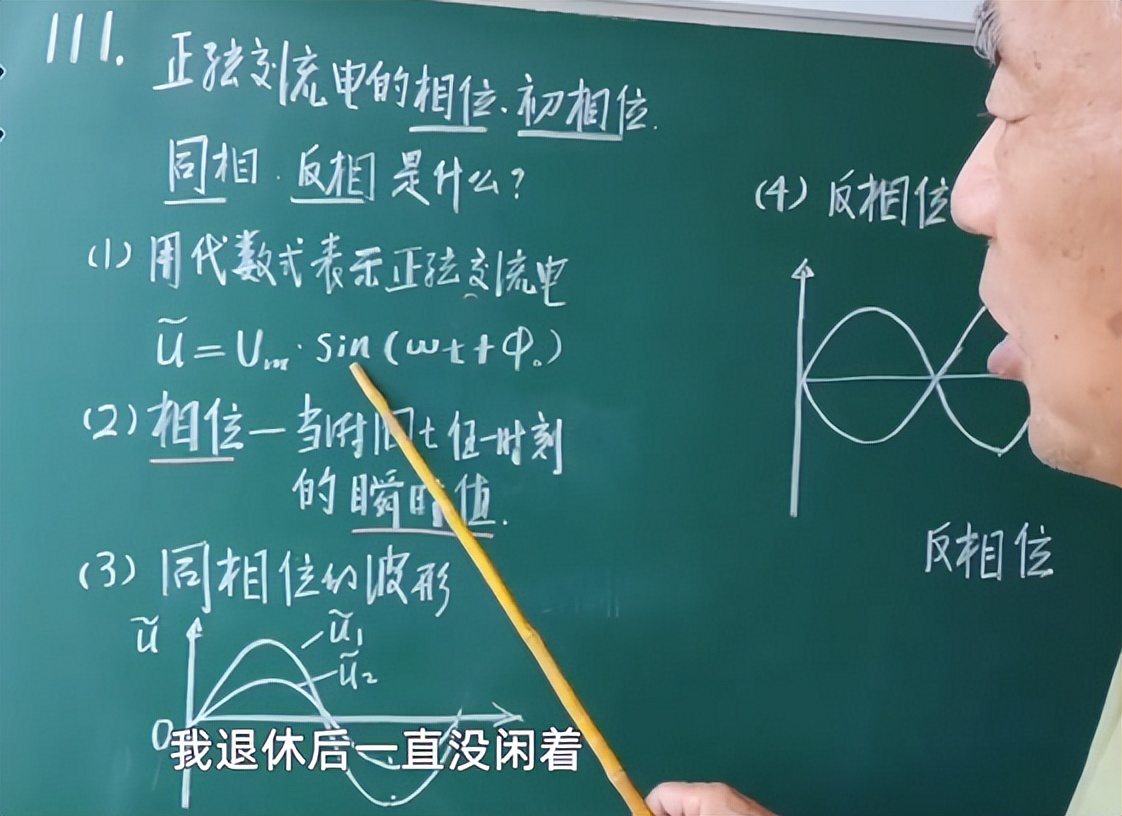 111.
正弦交流电的相位.初相位.
同相.反相是什么?
(1)用代数式表示正弦交流电
ũ=Um·sin(ωt+φ₀)
(2)相位—当时间t任一时刻
的瞬时值.
(3)同相位的波形
ũ
ũ₁
ũ₂
0
(4)反相位
反相位
我退休后一直没闲着